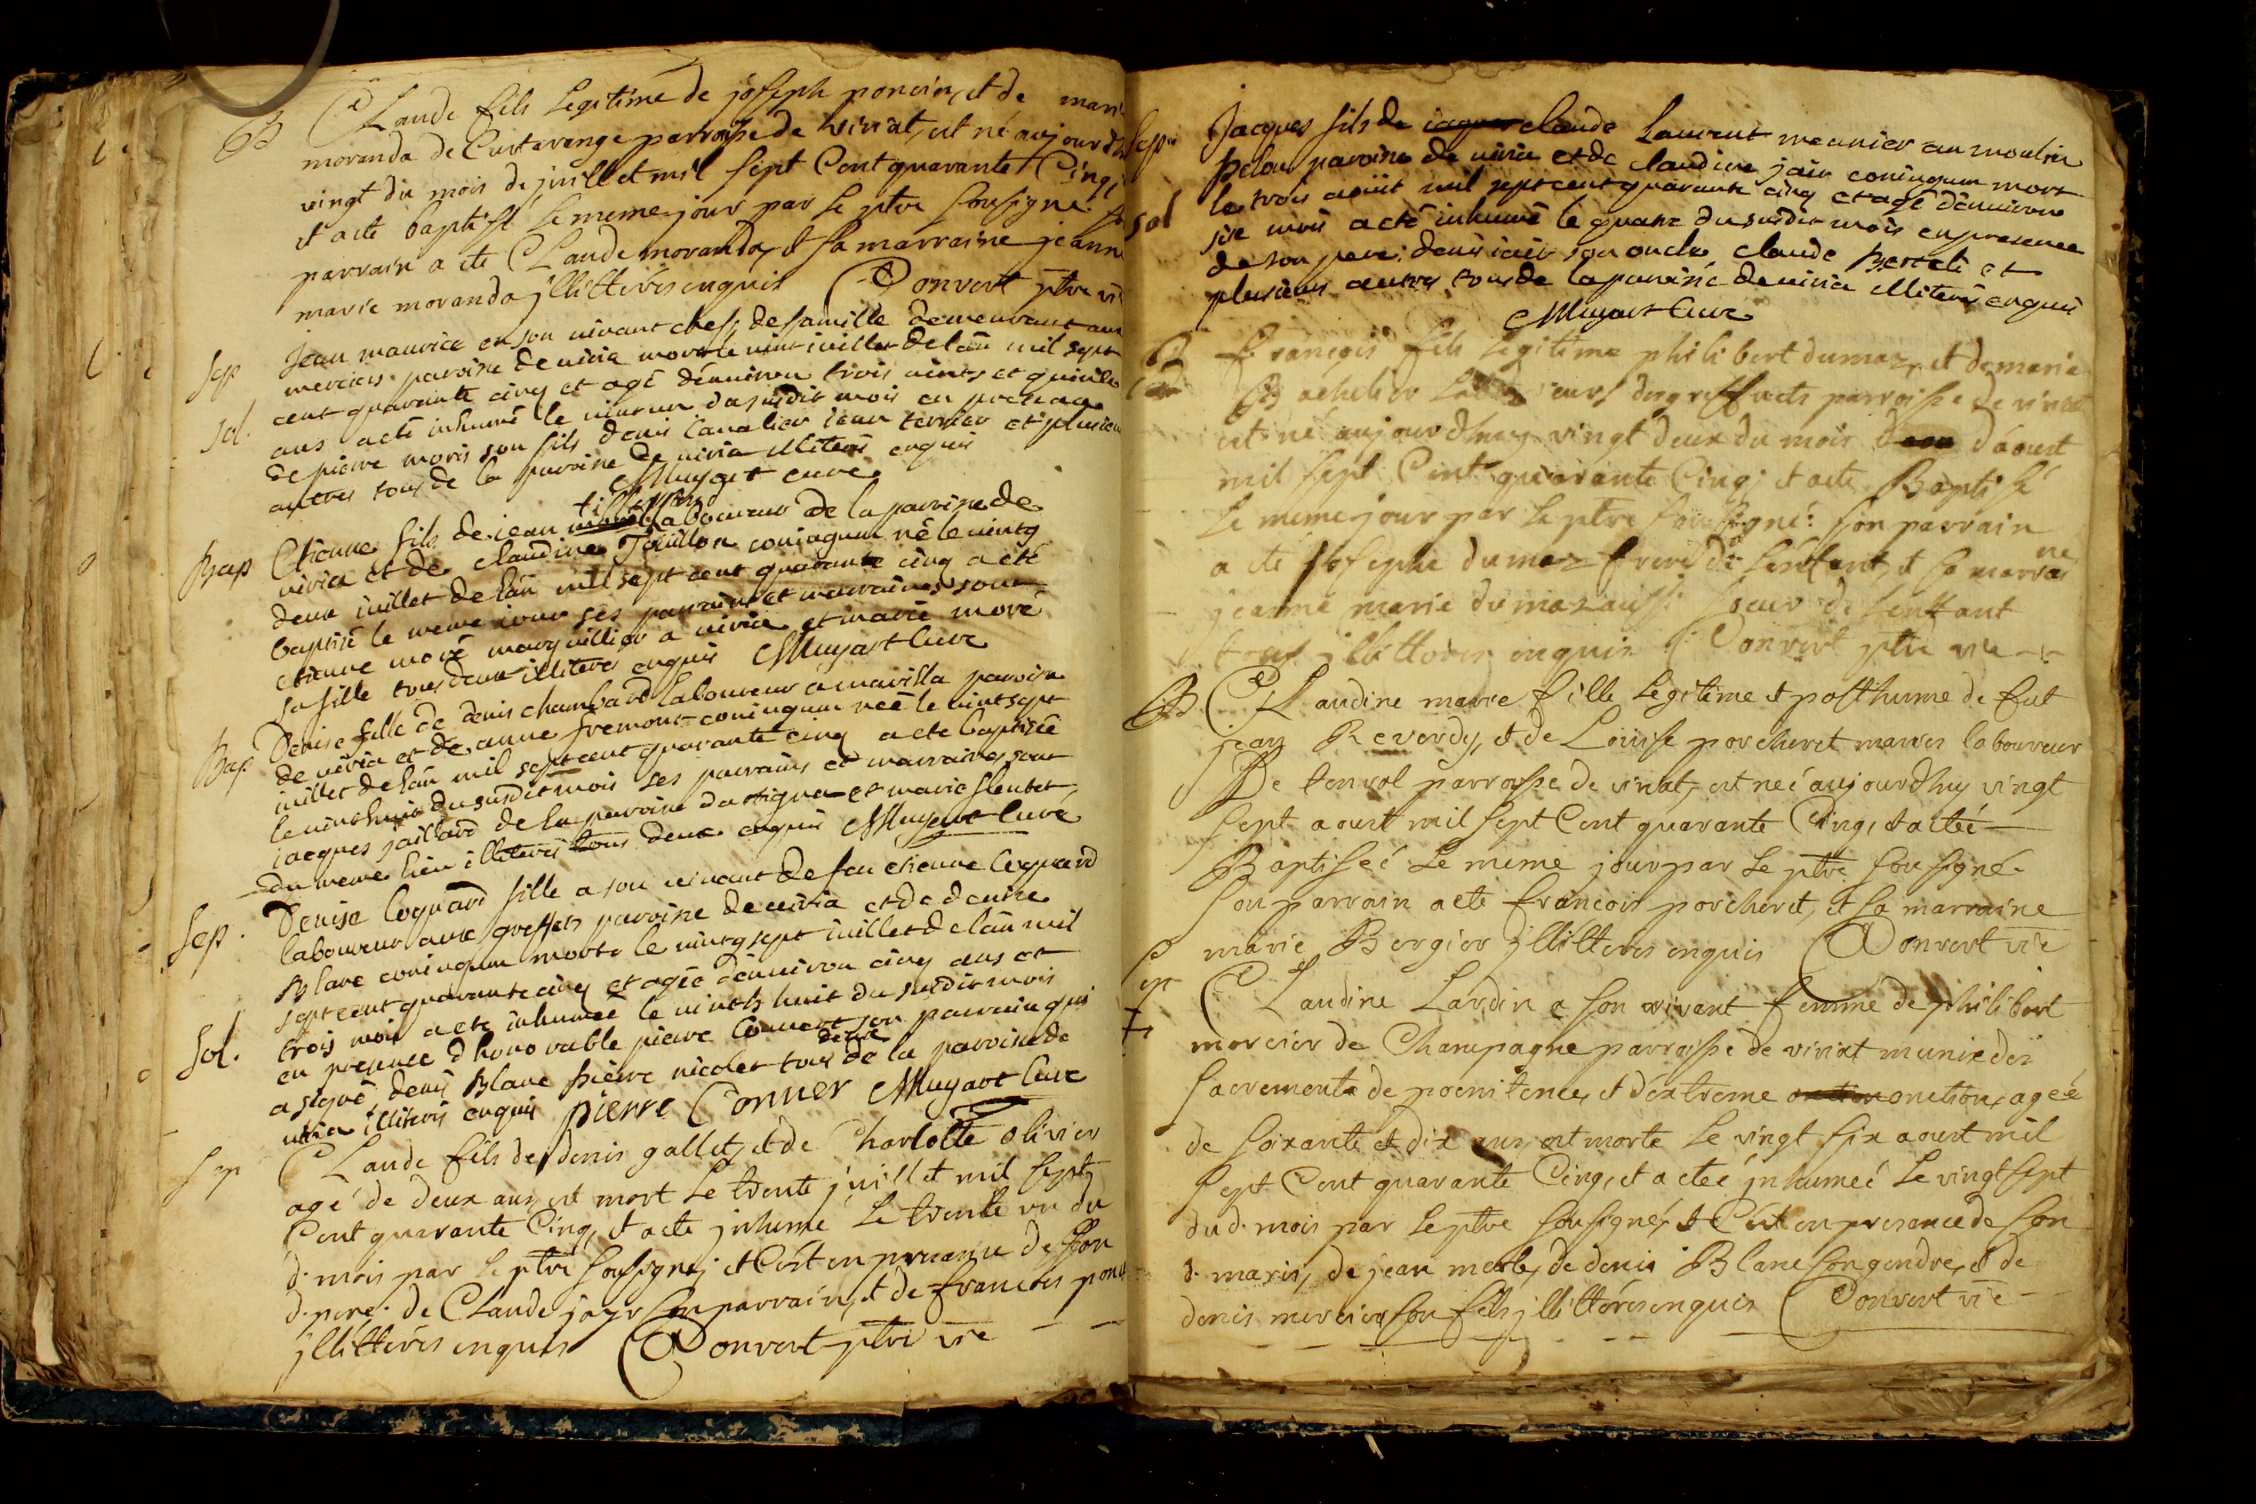 B Claude fils Legitime de joseph poncin, et de mari
moranda de Curtavrange parroisse de viriat, est né aujourdh
vingt du mois de juillet mil sept Cent quarante Cinq,
et a ete baptisé le meme jour par le ptre sousigné. so
parrain a ete Claude moranda, et sa marraine jeann
marie moranda jllitterés enquis Convert ptre vi
Sep Jean maurice en son vivant chef de famille demeurant aux
merciers paroisse de viria mort le vint juillet de lãn mil sept
sol. cent quarante cinq et agé dénviron trois vints et quinze
ans a eté inhumé le vint un du susdit mois en presence
de pierre moris son fils denis Cavalier jean terrier et plusieu
autres tous de la paroisse de viria illiterés enquis
Muyart curé
Bap Etienne fils de jean laboureur de la paroisse de
viria et de claudine Touillon coniugum né le vintq
deux juillet de lãn mil sept cent quarante cinq a eté
baptisé le meme jour ses parrains et marraines sont
etienne moré marguillier a viria et marie moré
sa fille tous deux illiteres enquis Muyart Curé
Bap. Denise fille de denis chambard laboureur a marilla paroisse
de viria et de anne fremont coniugum néé le vint sept
juillet de lãn mil sept cent quarante cinq a ete baptiséé
le vint huit du susdit mois ses parrains et marraines sont
jacques jaillard de la paroise dattignat et marie fleutet
du meme lieu illiterés tous deux enquis Muyart Curé
Sep. Denise coquard fille a son vivant de feu etienne Coquard
laboureur aux greffets paroisse de viria et de denise
Blanc coniugum morte le vintq sept juillet de lãn mil
sept cent quarante cinq et agéé dénviron cinq ans et
trois mois a ete inhumeé le vintq huit du susdit mois
sol. en presence dhonorable pierre Convert son parrain qui
a signé, denis Blanc pierre nicolet tous deux de la paroisse de
viria illiterés enquis pierre Conver Muyart Curé
sep Claude fils de denis gallet, et de Charlotte olivier
agé de deux ans est mort le trente juillet mil sept
Cent quarante Cinq, et a ete jnhumé le trente un du
d. mois par le ptre sousigné, et C'est en presance de son
d. pere. de Claude jayr son parrain, et de francois ponc
jllitterés enquis Convert ptre vre
Sep. Jacques fils de jaques claude Laurent meunier au moulin
pelou paroisse de viria et de claudine jair coniugum mort
le trois aoüt mil sept cent quarante cinq et agé dénviron
sol six mois a eté inhumé le quatre du susdit mois en presence
de son pere, denis jair son oncle, claude Berteli et
plusieurs autres tous de la paroisse de viria illiterés enquis
Muyart Curé
B francois fils legitime philibert dumaz, et de marie
Bachelier laboureurs des greffets parroisse de viriat
est né aujourdhuy vingt deux du mois d'aoust
mil sept Cent quarante Cinq, et a ete Baptisé
le meme jour par le ptre sousigné. son parrain
a eté joseph dumaz frere de lenfant, et sa marraine
jeanne marie dumaz aussi soeur de lenffant
tous jllitterés enquis Convert ptre vre
B Claudine marie fille legitime et posthume de fut
jean Reverdy, et de Louise porcheret mariés laboureur
De tenrol parroisse de viriat, est neé aujourdhuy vingt
sept aoust mil sept Cent quarante Cinq, et a eté
Baptiseé le meme jour par le ptre sousigné.
son parrain a ete francois porcheret, et sa marraine
marie Bergier jllitteres enquis Convert vre
Sep Claudine Lardin a son vivant femme de philibert
mercier de Champagne parroisse de viriat munie des
sacrements de poenitence, et d'extreme onction, ageé
de soixante et dix ans est morte le vingt six aoust mil
sept Cent quarante Cinq, et a eteé jnhumeé le vingt sept
du d. mois par le ptre sousigné, et C'est en presance de son
d. maris, de jean merle, de denis Blanc son gendre, et de
denis mercier son fils jllitterés enquis Convert vre